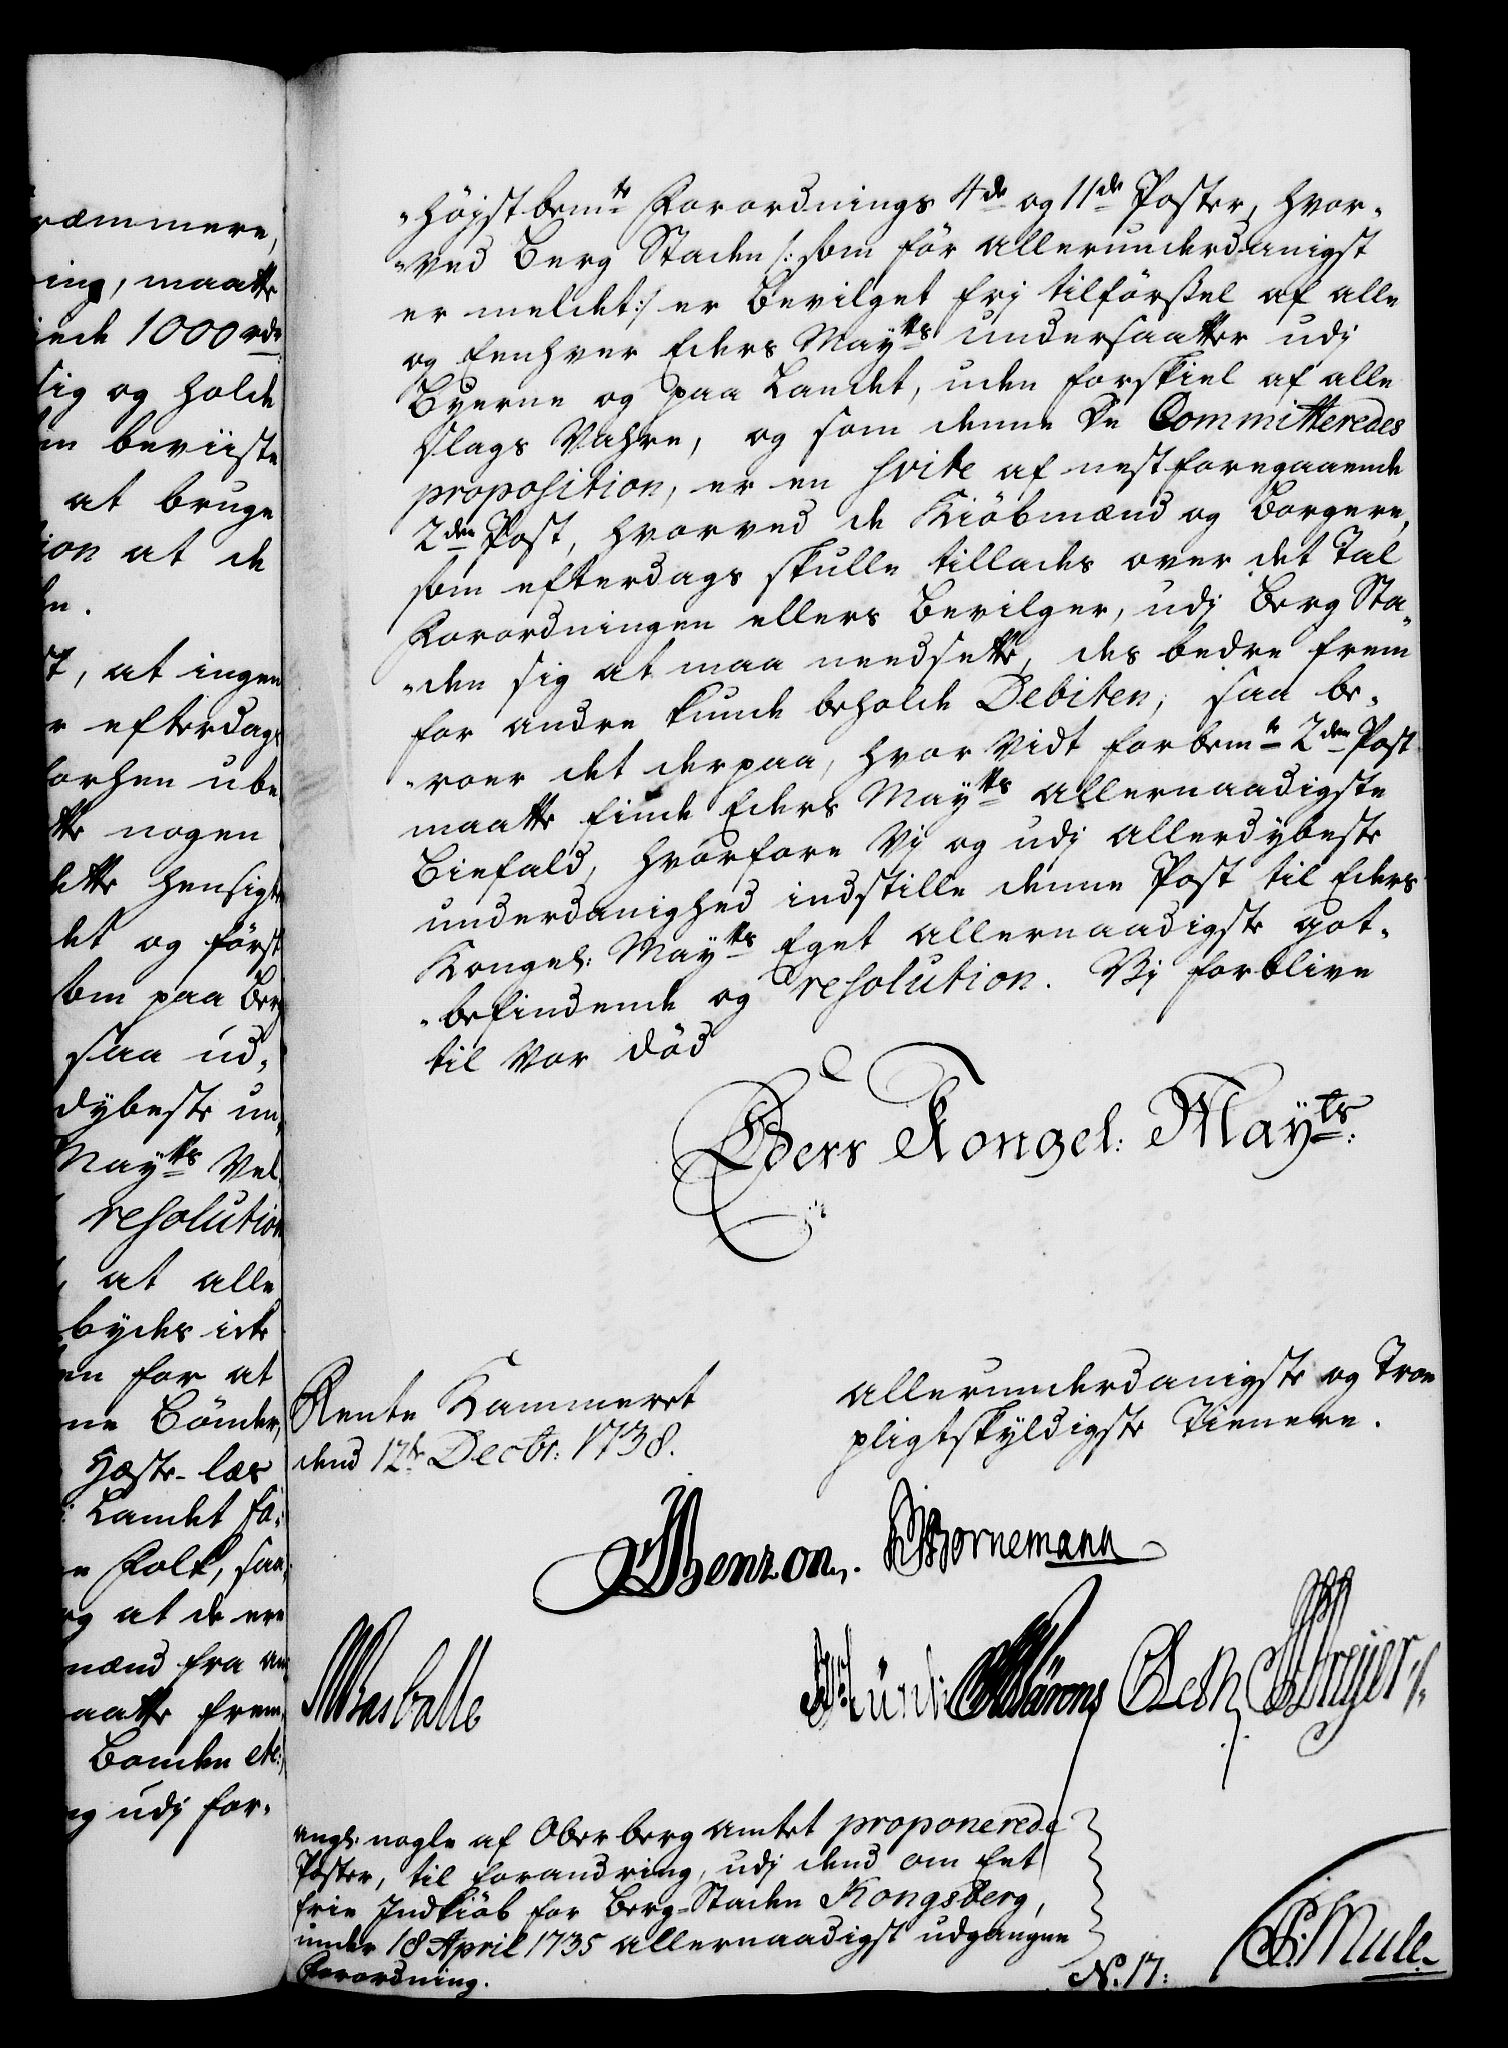 ræmmere,
ing, maatte
iede 1000 rdr
sig og holde
beviiste
at bruge
ion at de
, at ingen
r efterdags
forhen ube
tte nogen
dette hensigt
det og först
som paa Berg
saa ud-
dybeste un-
Mayts Vel
resolution
, at alle
bydes icke
en for at
ne Bönder,
Heste-læs
Landet fö-
e Folk, saa-
og at de ere
mænd fra an-
maatte frem-
Bonden etc:
og udj for-
"höjstbemte Forordnings 4de og 11de Poster, hvor-
"ved Berg Staden /: som för allerunderdanigst
er meldet:/ er bevilget frj tilförssel af alle
og Eenhver Eders Mayts undersaatter udj
Byerne og paa Landet, uden forskiel af alle
slags Vahre, og som denne De Committeredes
proposition, er en svite af nestforegaaende
2den Post, hvorved de Kiöbmænd og Borgere,
som efterdags skulle tillades over det Tal
Forordningen ellers bevilger, udj Berg Sta-
"den sig at maa needsette, des bedre frem
for andre kunde beholde Debiten; saa be-
"roer det derpaa, hvor vidt forbemte 2den Post
maatte finde Eders Mayts allernaadigste
Biefald, hvorfore Vj og udj allerdybeste
underdanighed indstille denne Post til Eders
Kongel: Mayts Eget allernaadigste got-
"befindende og resolution. Vj forblive
til vor död
Eders Kongel: Mayts:
Rente Kammeret
dend 12te Decbr: 1738.
allerunderdanigste og Troe
pligtskyldigste Tienere.
Benzon. Bornemann
Basballe
Cleth Dreyer
angl: nogle af Oberberg amtet proponerede
Poster, til forandring, udj dend om Eet
frie Indkiöb for Berg-Staden Kongsberg,
under 18 April 1735 allernaadigst udgangne
Forordning.
No. 17:
Mule